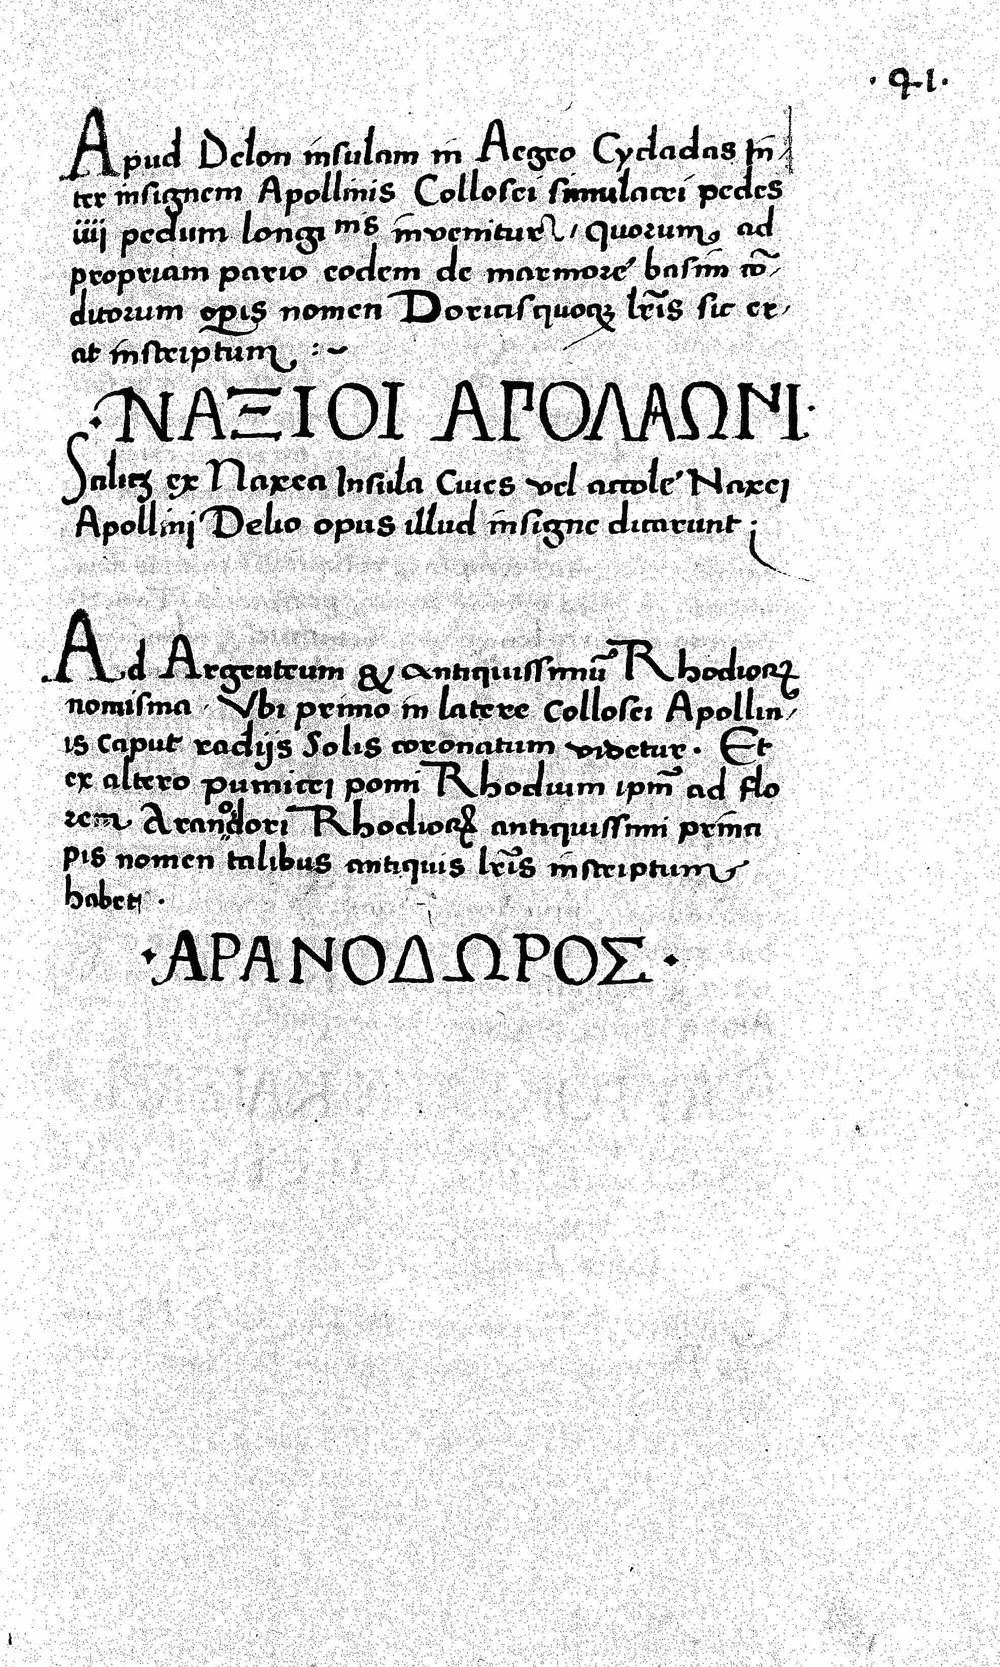 · 91 ·
Apud Delon insulam in Aegeo Cycladas In/
ter insignem Apollinis Collosei simulacri pedes
iiij pedum longi ms invenitur / quorum ad
propriam pario eodem de marmore basim cō/
ditorum opis nomen Doricisquoqꝫ lr̄is sic er/
at inscriptum :~
· ΝΑΞΙΟΙ ΑΠΟΛΛΩΝΙ ·
Salicꝫ ex Naxea Insula Cives vel accole Naxei
Apollini Delio opus illud insigne dicarunt ;
Ad Argenteum & antiquissimū Rhodioꝝ
nomisma · Vbi primo in latere Collosei Apollin/
is caput radijs Solis coronatum videtur · Et
ex altero punicei pomi Rhodium ip̄m ad flo
rem Arandori Rhodioꝝ antiquissimi prima
pis nomen talibus antiquis lr̄is inscriptum
habet ·
· ΑΡΑΝΟΔΩΡΟΣ ·